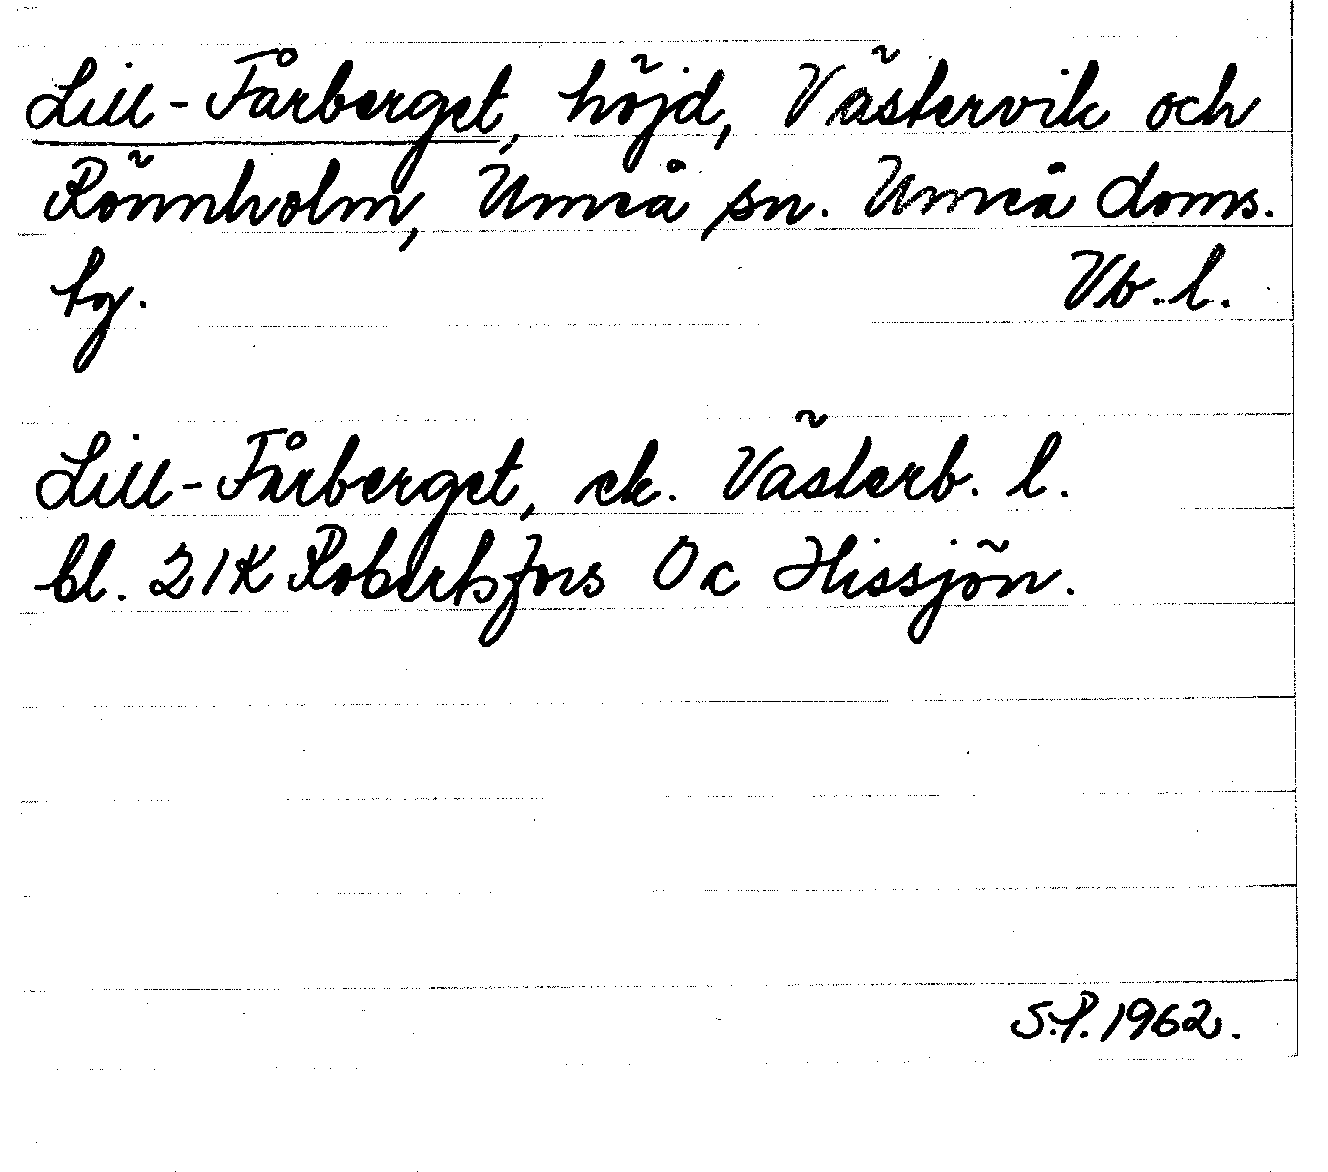 Lill-Fårberget, höjd, Västervik och
Rönnholm, Umeå sn. Umeå doms.
hg. Vb. l.
Lill-Fårberget, ek. Västerb. l.
bl. 21K Robertsfors 0c Hissjön.
S.P. 1962.